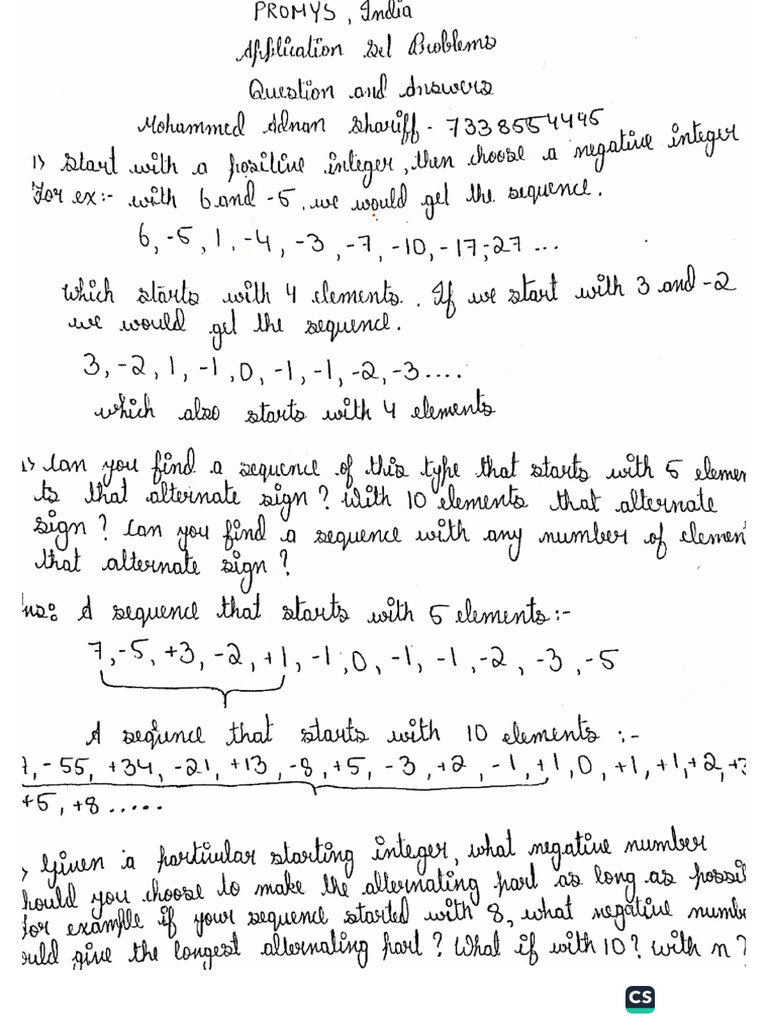 PROMYS, India
Application Set Problems
Question and Answers
Mohammed Adnan Shariff - 7338554445
1) Start with a positive integer, then choose a negative integer
For ex:- with 6 and -5, we would get the sequence.
6, -5, 1, -4, -3, -7, -10, -17, -27 ...
which starts with 4 elements. If we start with 3 and -2
we would get the sequence.
3, -2, 1, -1, 0, -1, -1, -2, -3 ....
which also starts with 4 elements
1) Can you find a sequence of this type that starts with 5 elemen
ts that alternate sign? With 10 elements that alternate
sign? Can you find a sequence with any number of elemen
that alternate sign?
ns: A sequence that starts with 5 elements:-
7, -5, +3, -2, +1, -1, 0, -1, -1, -2, -3, -5
A sequnce that starts with 10 elements :-
, -55, +34, -21, +13, -8, +5, -3, +2, -1, +1, 0, +1, +1, +2, +3
+5, +8 .....
) Given a particular starting integer, what negative number
hould you choose to make the alternating part as long as possi
for example if your sequence started with 8, what negative numb
ould give the longest alternating part? What if with 10? with n?
CS